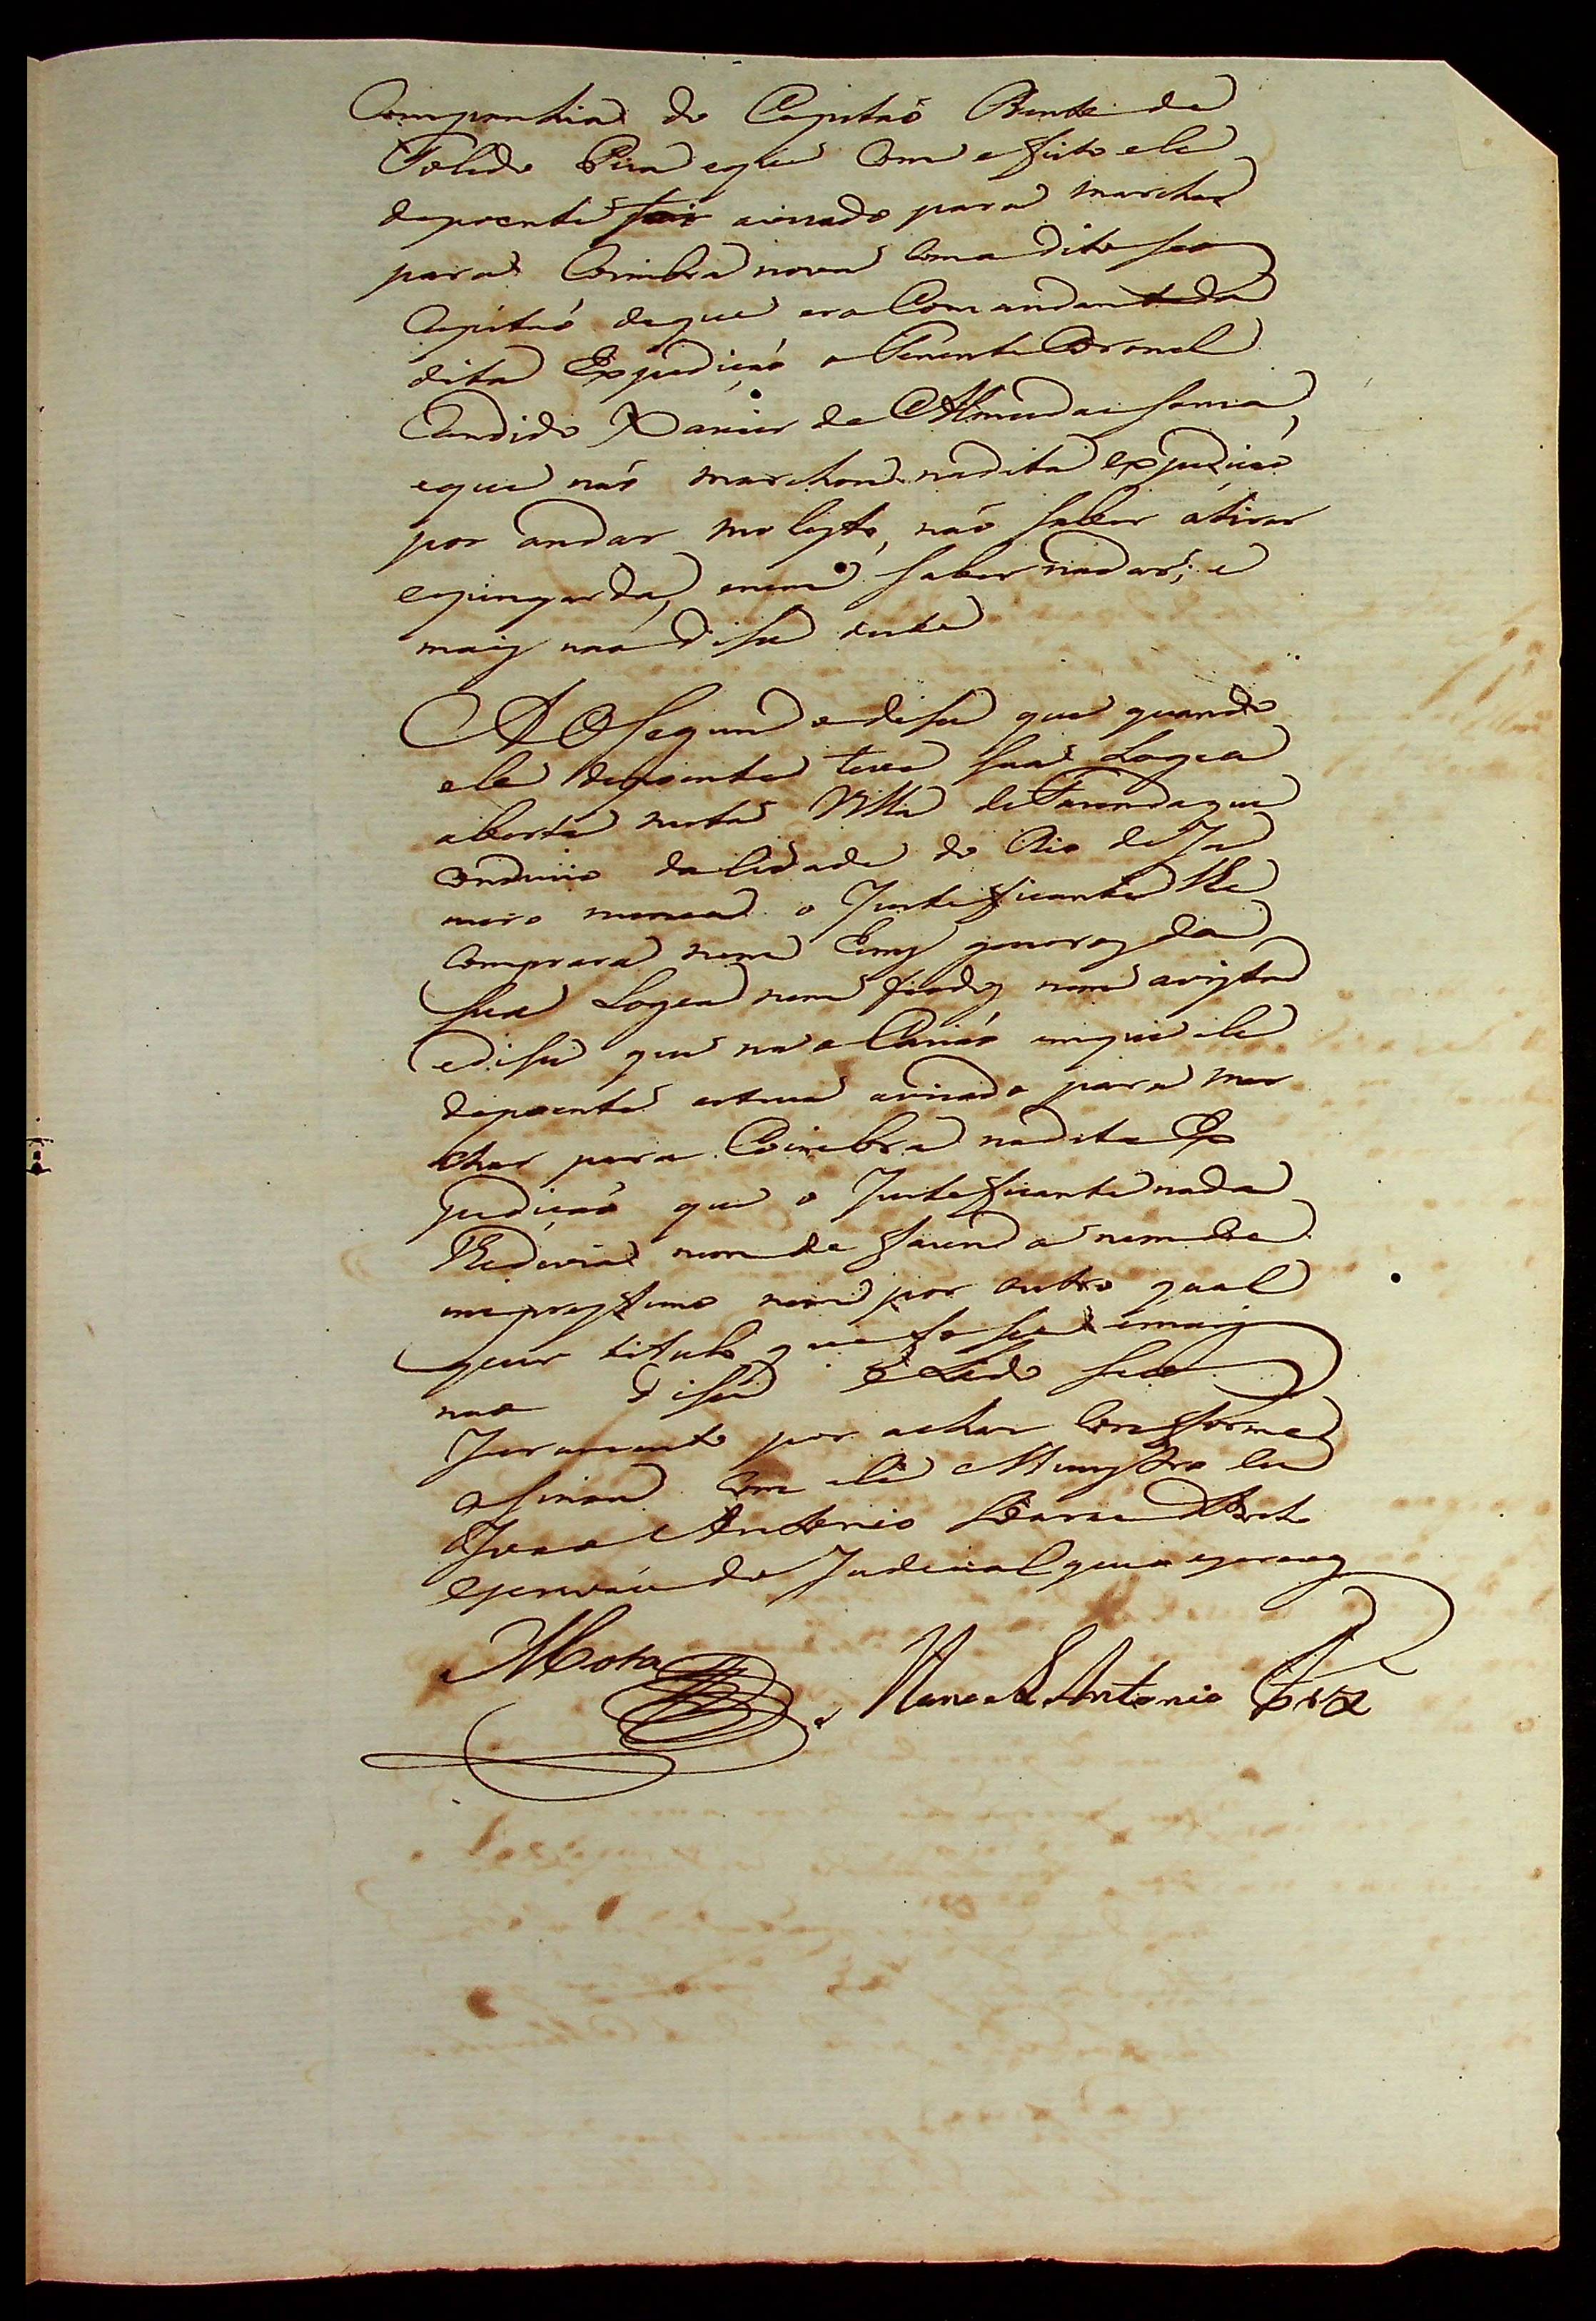 Companhia do Capitaó Bento de
Toledo Piza eque Com efeito ele
depoente foi avizado para marchar
para Coimbra nova Com a dito seo
Capitaó deque era Comandante da
dita Expediçaó o Tenente Coronel
Candido Xavier de Almeida e Souza,
eque naó marchou na dita expediçaó
por andar molesto, naó saber átirar
espingarda, enem saber nadar; e
mais naó dise deste
AO Segundo dise que quando
ele depoente teve sua Logea
aberta nesta Villa de Fazenda que
Conduzio da Cidade do Rio de Ja
neiro nunca o Justeficante lhe
Comprara nem huns generos da
sua Logea nem fiados nem avista
edise que na oCazião emque ele
depoente esteve avizado para mar
char para Coimbra na dita Ex
pediçaó que o Justeficante nada
lhe devia nem de fazenda nem de
emprestimo nem por outro qual
quer titulo que fose e mais
nao dise e Lido seo
Juramento por achar Conforme
asinou Com ele Menystro eu
Joze Antonio
escrivaó do Judicial que o escrevy
Mota
Manoel Antonio